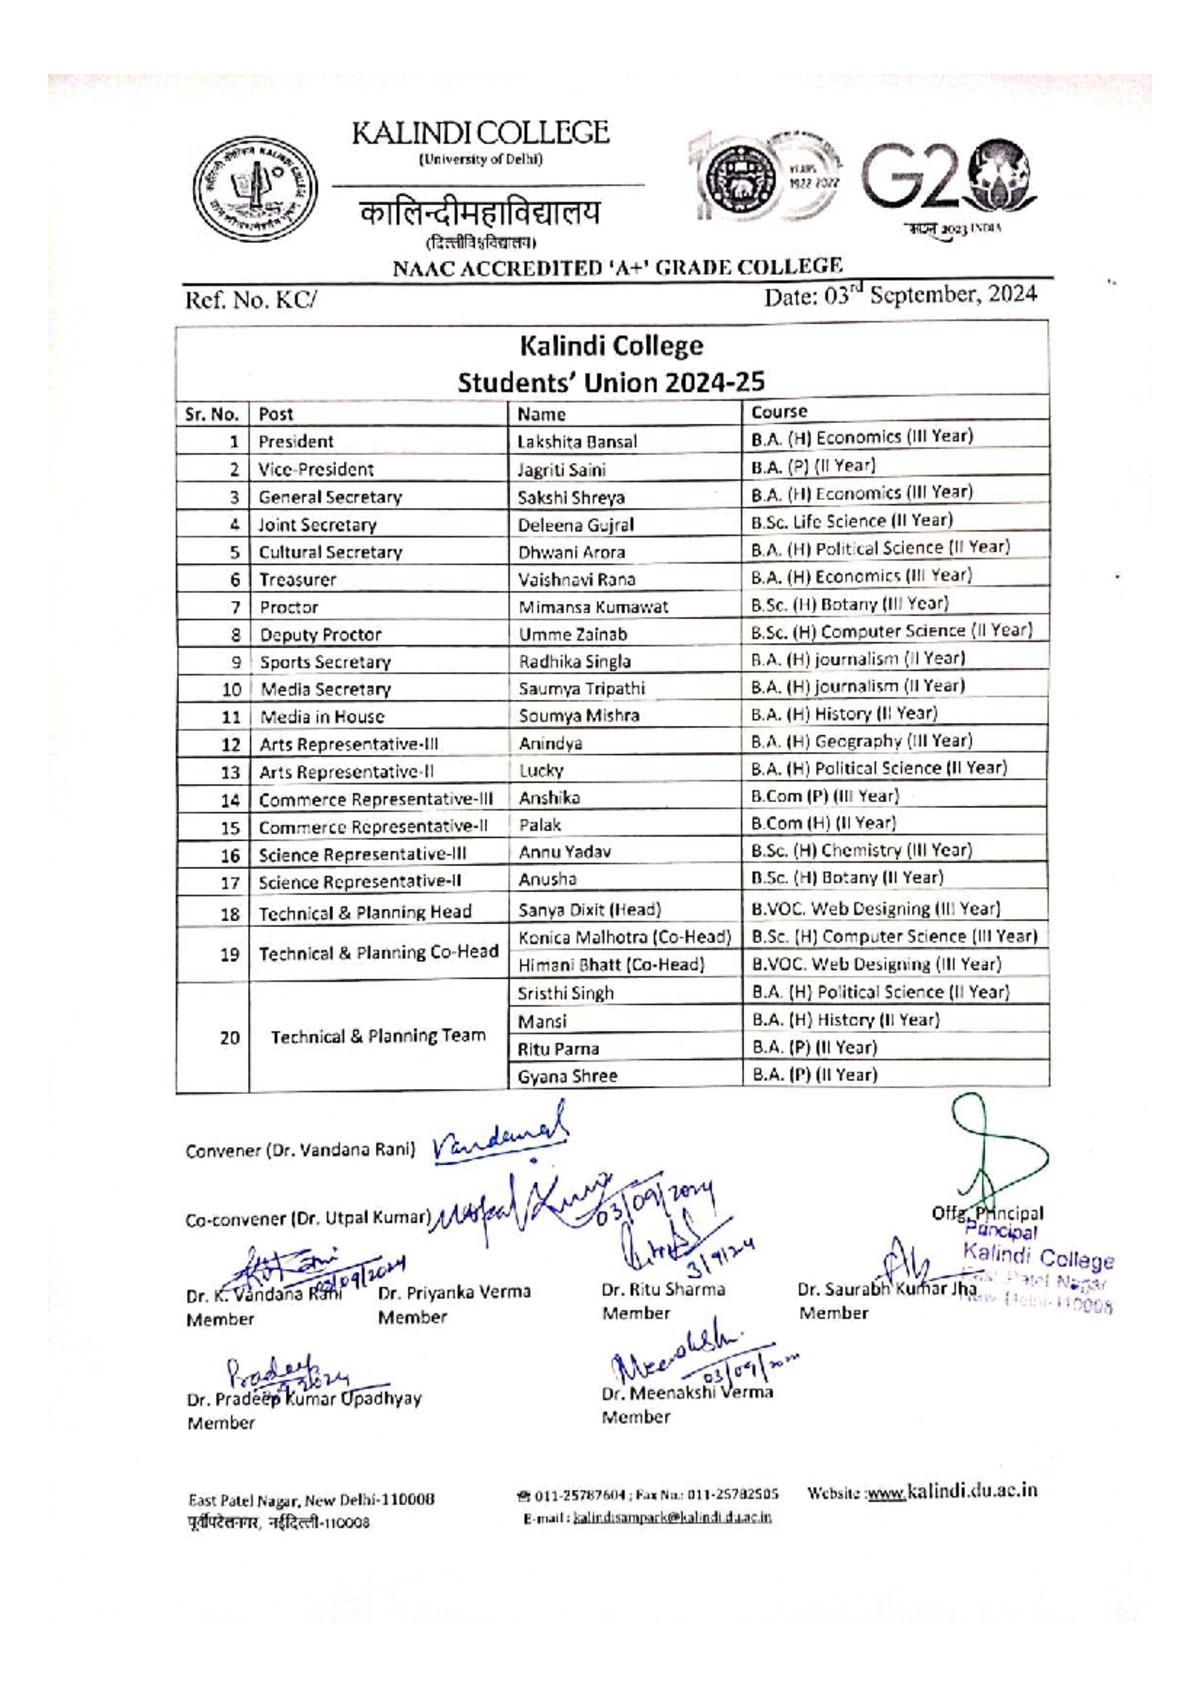 KALINDI COLLEGE
(University of Delhi)
कालिन्दीमहाविद्यालय
(दिल्लीविश्वविद्यालय)
100 YEARS
1922-2022
G20
भारत 2023 INDIA
NAAC ACCREDITED ‘A+’ GRADE COLLEGE
Ref. No. KC/ Date: 03rd September, 2024
Kalindi College
Students’ Union 2024-25
Sr. No. Post Name Course
1 President Lakshita Bansal B.A. (H) Economics (III Year)
2 Vice-President Jagriti Saini B.A. (P) (II Year)
3 General Secretary Sakshi Shreya B.A. (H) Economics (III Year)
4 Joint Secretary Deleena Gujral B.Sc. Life Science (II Year)
5 Cultural Secretary Dhwani Arora B.A. (H) Political Science (II Year)
6 Treasurer Vaishnavi Rana B.A. (H) Economics (III Year)
7 Proctor Mimansa Kumawat B.Sc. (H) Botany (III Year)
8 Deputy Proctor Umme Zainab B.Sc. (H) Computer Science (II Year)
9 Sports Secretary Radhika Singla B.A. (H) journalism (II Year)
10 Media Secretary Saumya Tripathi B.A. (H) journalism (II Year)
11 Media in House Soumya Mishra B.A. (H) History (II Year)
12 Arts Representative-III Anindya B.A. (H) Geography (III Year)
13 Arts Representative-II Lucky B.A. (H) Political Science (II Year)
14 Commerce Representative-III Anshika B.Com (P) (III Year)
15 Commerce Representative-II Palak B.Com (H) (II Year)
16 Science Representative-III Annu Yadav B.Sc. (H) Chemistry (III Year)
17 Science Representative-II Anusha B.Sc. (H) Botany (II Year)
18 Technical & Planning Head Sanya Dixit (Head) B.VOC. Web Designing (III Year)
19 Technical & Planning Co-Head Konica Malhotra (Co-Head) B.Sc. (H) Computer Science (III Year)
Himani Bhatt (Co-Head) B.VOC. Web Designing (III Year)
20 Technical & Planning Team Sristhi Singh B.A. (H) Political Science (II Year)
Mansi B.A. (H) History (II Year)
Ritu Parna B.A. (P) (II Year)
Gyana Shree B.A. (P) (II Year)
Convener (Dr. Vandana Rani)
Co-convener (Dr. Utpal Kumar) Utpal Kumar 03/09/2024
Offg. Principal
Principal
Kalindi College
East Patel Nagar
New Delhi-110008
3/9/24
03/09/2024
Dr. K. Vandana Rani Dr. Priyanka Verma Dr. Ritu Sharma Dr. Saurabh Kumar Jha
Member Member Member Member
Pradeep Meenakshi
03/09/2024
Dr. Pradeep Kumar Upadhyay Dr. Meenakshi Verma
Member Member
East Patel Nagar, New Delhi-110008 ☎ 011-25787604 ; Fax No.: 011-25782505 Website :www.kalindi.du.ac.in
पूर्वीपटेलनगर, नईदिल्ली-110008 E-mail : kalindisampark@kalindi.du.ac.in